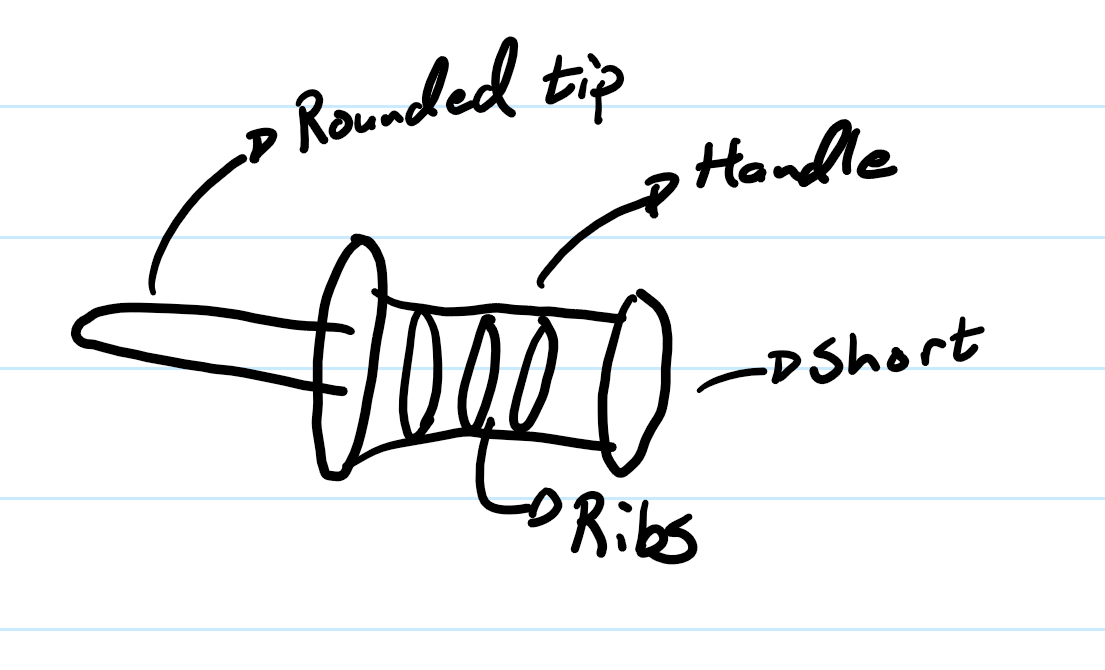 Rounded tip
Handle
Short
Ribs